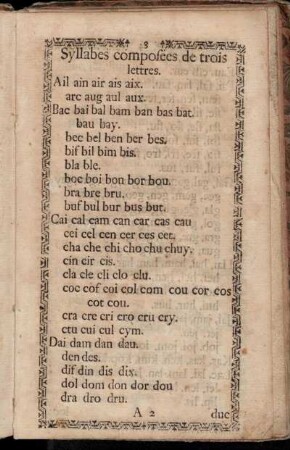 8
Syllabes composées de trois
lettres.
Ail ain air ais aix.
arc aug aul aux.
Bac bai bal bam ban bas bat.
bau bay.
bec bel ben ber bes.
bif bil bim bis.
bla ble.
boc boi bon bor bou.
bra bre bru.
buf bul bur bus but.
Cai cal cam can car cas cau
cei cel cen cer ces cet.
cha che chi cho chu chuy.
cin cir cis.
cla cle cli clo clu.
coc cof coi col com cou cor cos
cot cou.
cra cre cri cro cru cry.
ctu cui cul cym.
Dai dam dan dau.
den des.
dif din dis dix.
dol dom don dor dou
dra dro dru.
A 2 due